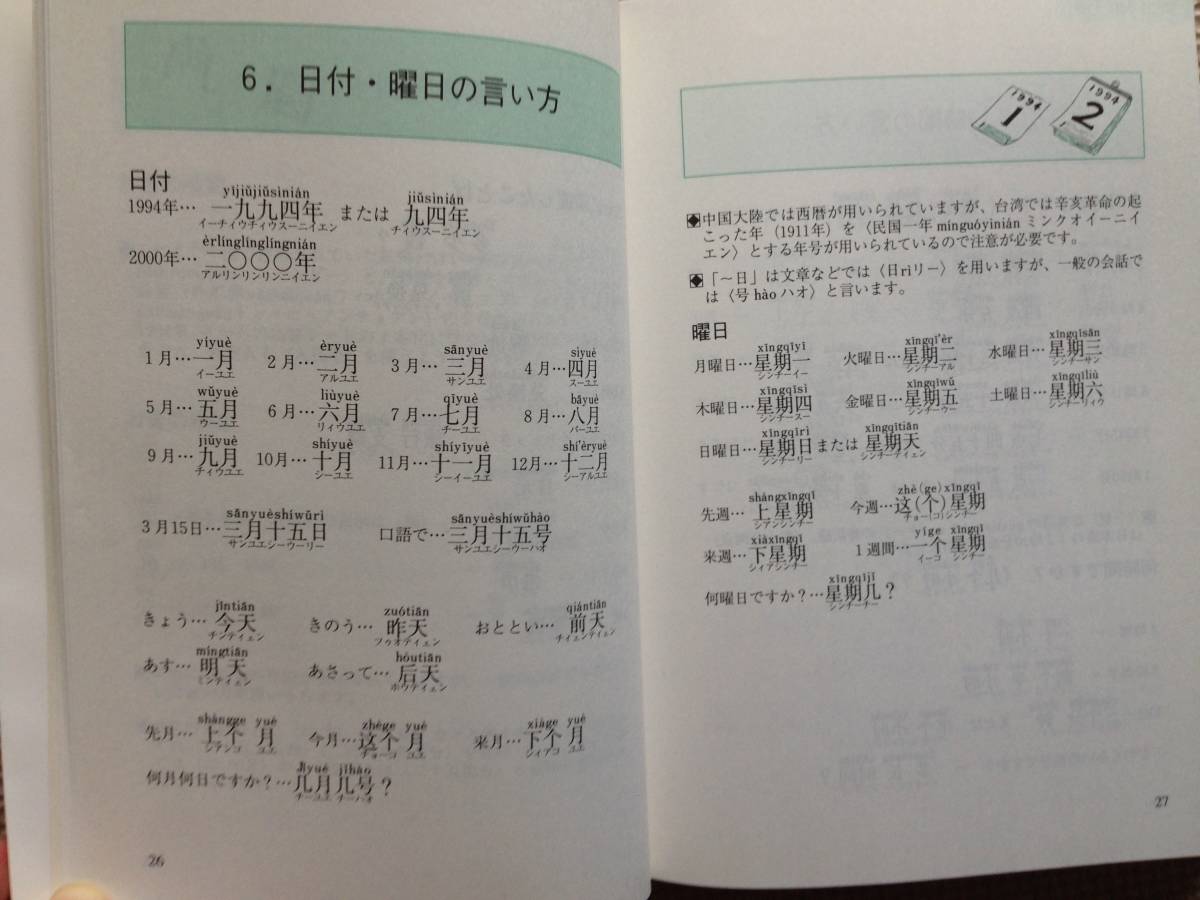 6. 日付・曜日の言い方
日付
yījiǔjiǔsìnián jiǔsìnián
1994年…一九九四年 または 九四年
イーチィウチィウスーニイエン チィウスーニイエン
èrlínglínglíngnián
2000年…二〇〇〇年
アルリンリンリンニイエン
yíyuè èryuè sānyuè sìyuè
1月…一月 2月…二月 3月…三月 4月…四月
イーユエ アルユエ サンユエ スーユエ
wǔyuè liùyuè qīyuè bāyuè
5月…五月 6月…六月 7月…七月 8月…八月
ウーユエ リィウユエ チーユエ パーユエ
jiǔyuè shíyuè shíyīyuè shí'èryuè
9月…九月 10月…十月 11月…十一月 12月…十二月
チィウユエ シーユエ シーイーユエ シーアルユエ
sānyuèshíwǔrì sānyuèshíwǔhào
3月15日…三月十五日 口語で…三月十五号
サンユエシーウーリー サンユエシーウーハオ
jīntiān zuótiān qiántiān
きょう…今天 きのう…昨天 おととい…前天
チンティェン ツゥオティェン チイェンティェン
míngtiān hòutiān
あす…明天 あさって…后天
ミンティェン ホウティェン
shàngge yuè zhège yuè xiàge yuè
先月…上个月 今月…这个月 来月…下个月
シアンコ ユエ チョーコ ユエ シィアコ ユエ
Jǐyuè jǐhào
何月何日ですか?…几月几号?
チーユエ チーハオ
26
1994
1
1994
2
◆中国大陸では西暦が用いられていますが、台湾では辛亥革命の起
こった年(1911年)を〈民国一年mínguóyìniánミンクオイーニイ
エン〉とする年号が用いられているので注意が必要です。
◆「〜日」は文章などでは〈日rìリー〉を用いますが、一般の会話で
は〈号hàoハオ〉と言います。
曜日
xīngqīyī xīngqī'èr xīngqīsān
月曜日…星期一 火曜日…星期二 水曜日…星期三
シンチーイー シンチーアル シンチーサン
xīngqīsì xīngqīwǔ xīngqīliù
木曜日…星期四 金曜日…星期五 土曜日…星期六
シンチースー シンチーウー シンチーリィウ
xīngqīrì xīngqītiān
日曜日…星期日または星期天
シンチーリー シンチーティェン
shàngxīngqī zhè(ge)xīngqī
先週…上星期 今週…这(个)星期
シアンシンチー チョー(コ)シンチー
xiàxīngqī yíge xīngqī
来週…下星期 1週間…一个星期
シィアシンチー イーコ シンチー
xīngqījǐ
何曜日ですか?…星期几?
シンチーチー
27